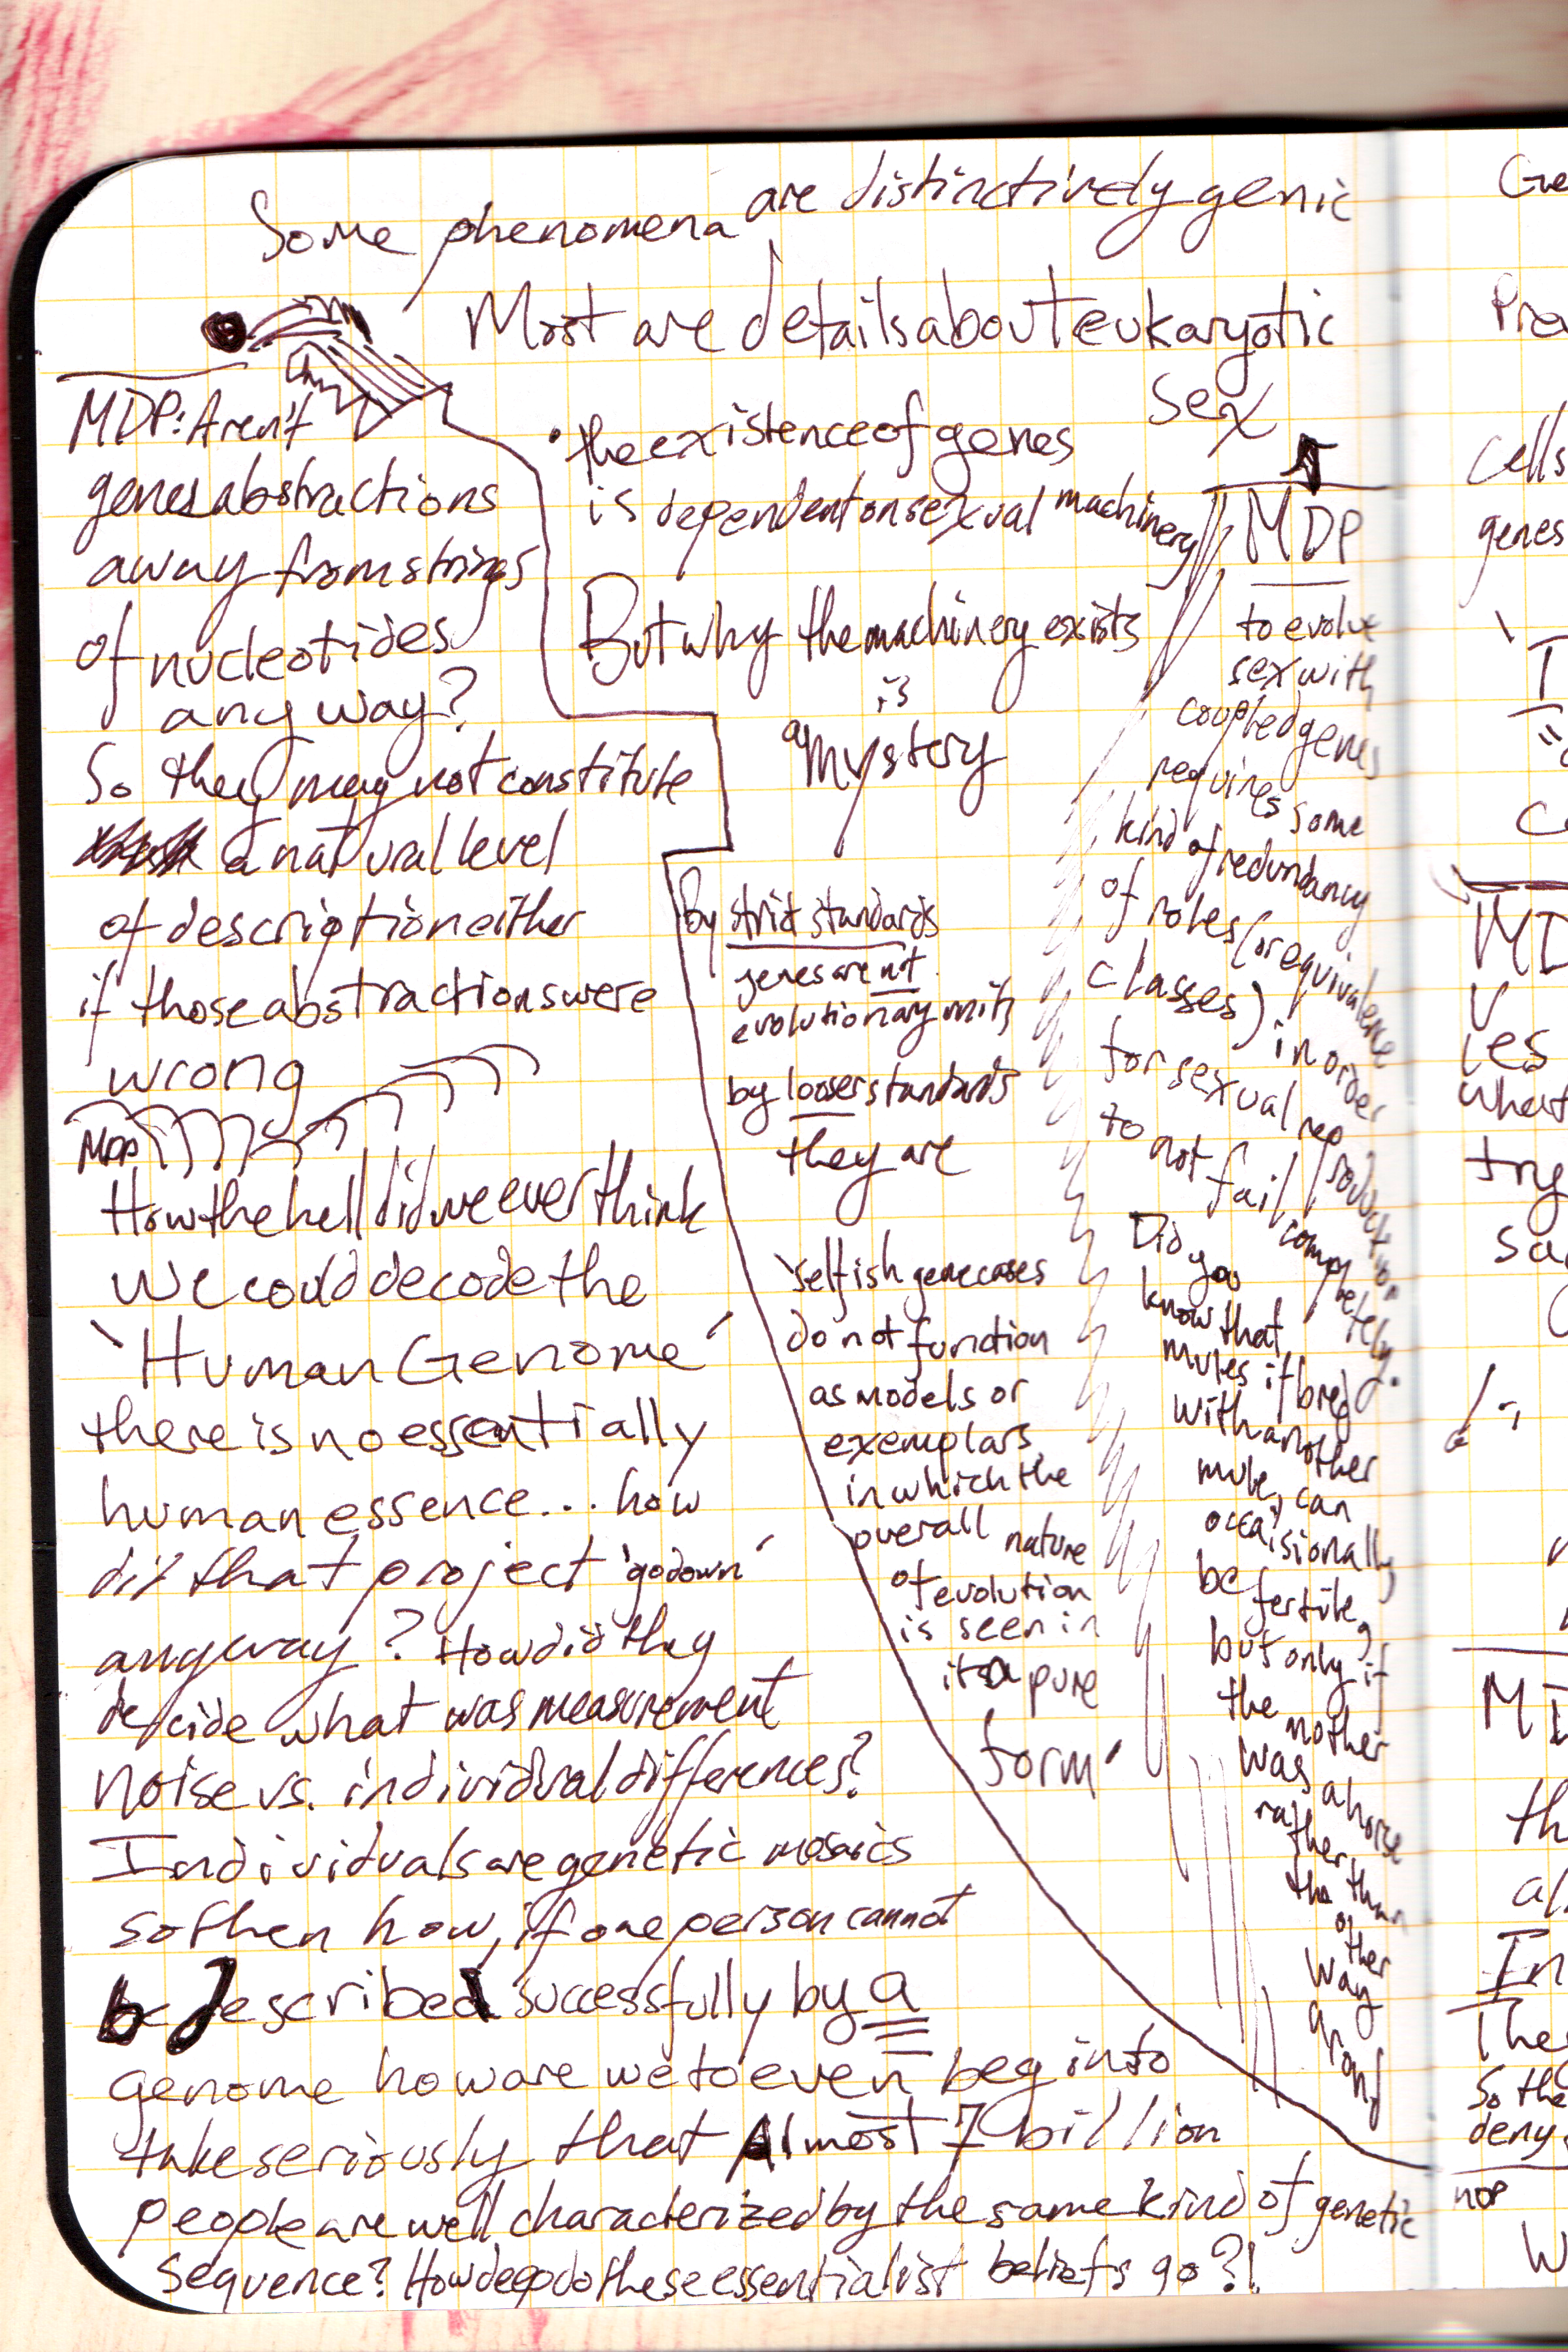 Some phenomena are distinctively genic
Most are details about eukaryotic
sex
• the existence of genes
is dependent on sexual machinery
But why the machinery exists
is
a mystery
by strict standards
genes are not
evolutionary units
by looser standards
they are
'selfish gene cases
do not function
as models or
exemplars
in which the
overall nature
of evolution
is seen in
its pure
form'
MDP: Aren't
genes abstractions
away from strings
of nucleotides
anyway?
So they may not constitute
a natural level
of description either
if those abstractions were
wrong
MDP
How the hell did we ever think
we could decode the
'Human Genome'
there is no essentially
human essence... how
did that project 'go down'
anyway? How did they
decide what was measurement
noise vs. individual differences?
Individuals are genetic mosaics
so then how, if one person cannot
be described successfully by a
genome how are we to even begin to
take seriously that Almost 7 billion
people are well characterized by the same kind of genetic
sequence? How deep do these essentialist beliefs go?!
MDP
to evolve
sex with
coupled genes
requires some
kind of redundancy
of roles (or equivalence
classes) in order
for sexual reproduction
to not fail completely.
Did you
know that
mules if bred
with another
mule, can
occaisionally
be fertile,
but only if
the mother
was a horse
rather than
the other
way
around
Ge
Pre
cells
genes
MD
what
try
sa
MD
th
al
In
The
So the
deny
nor
W